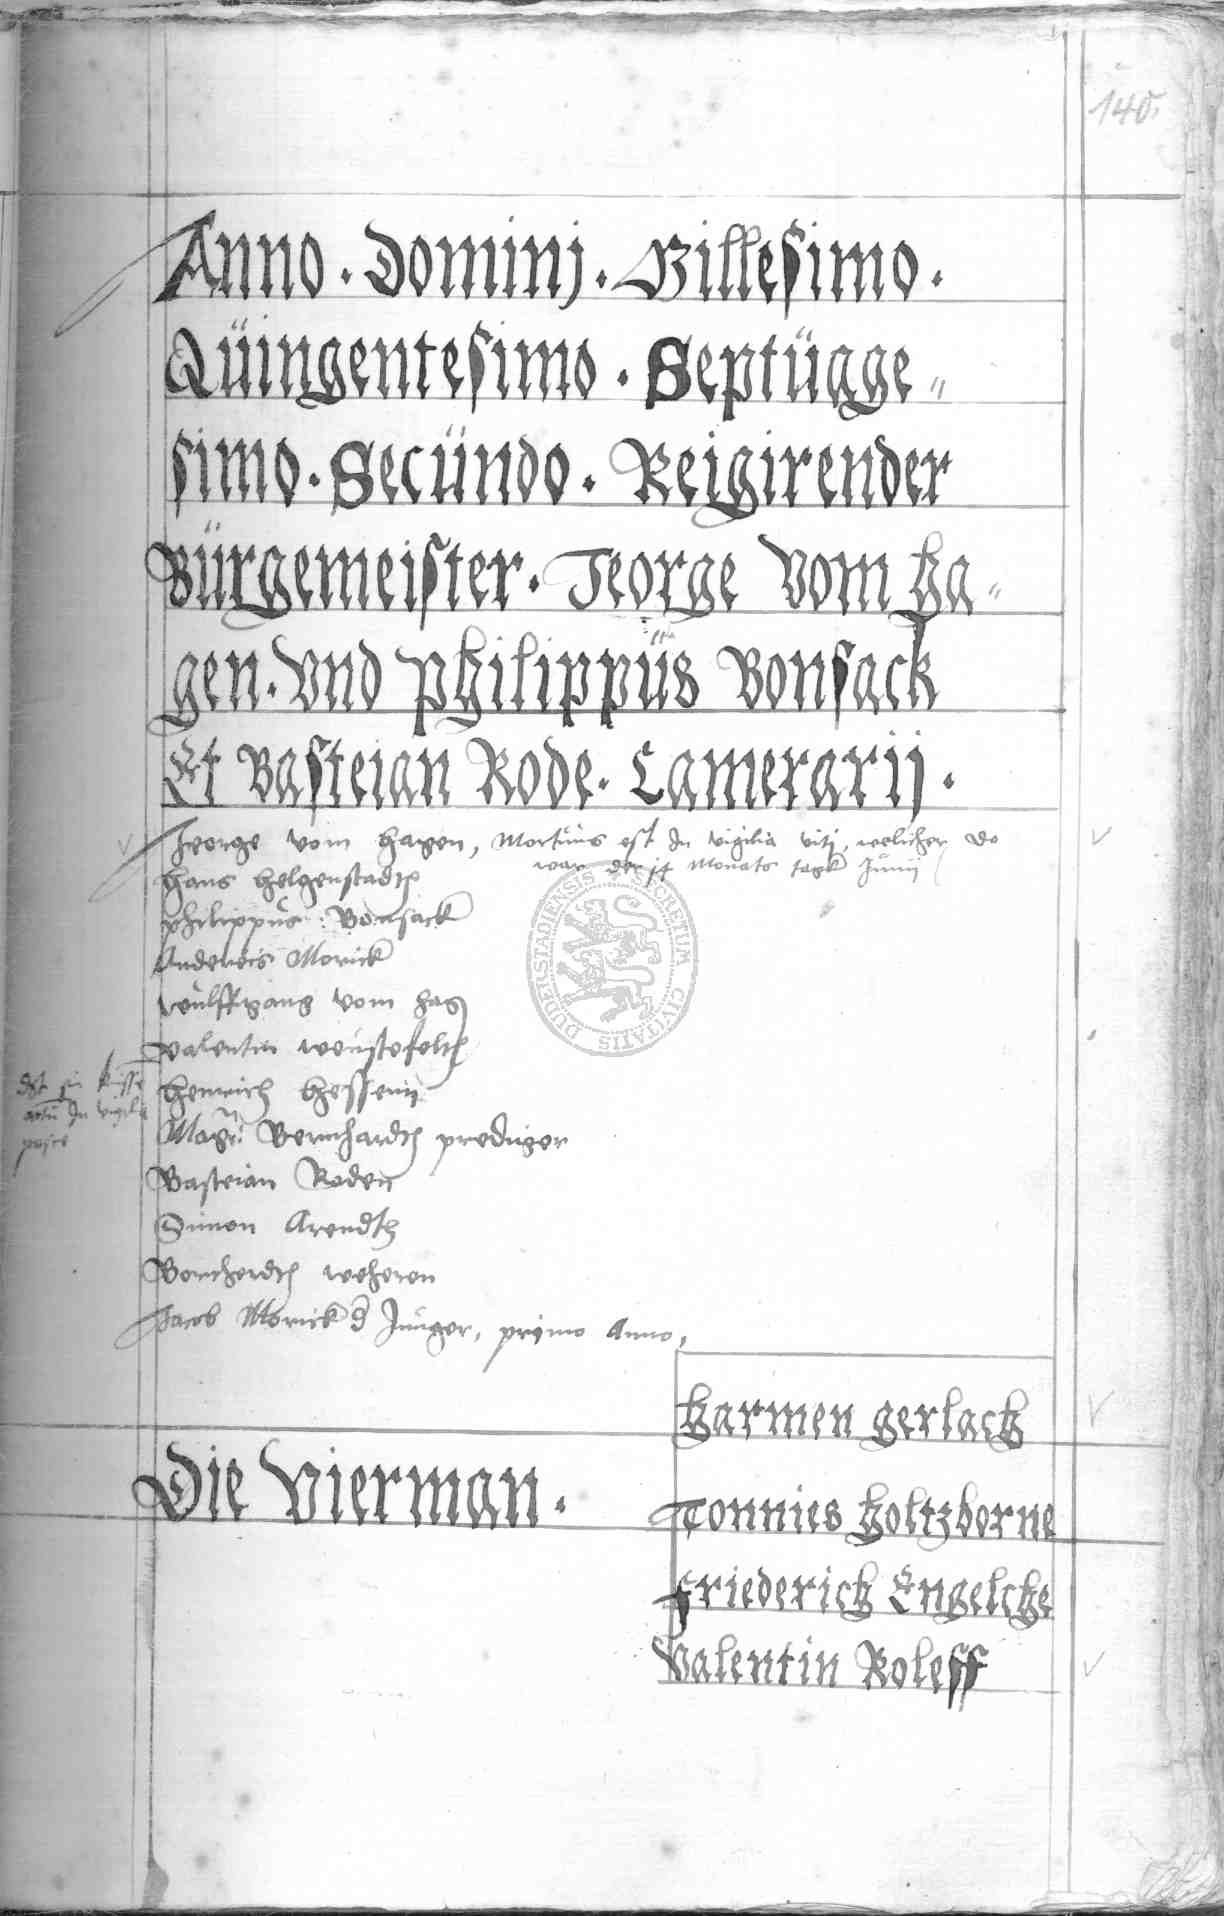 140.
Anno · Dominj · Millesimo ·
Qüingentesimo · Septüage〃
simo · Secündo · Reigirender
Bürgemeister · Jeorge Vom Ha〃
gen · Vnd Philippüs Bonsack
Et Basteian Rode · Camerarij ·
Jeorge vom Hagen, Mortuus est In vigilia viti, welicher do
war der 14 Monats tagk Junij
Hans Helgenstadth
Philippus Bonsack
Andereis Morick
Wulffgang vom Hag
Valentin Weustefelth
Henrich Hessenn
Magr Bernhardth prediger
Basteian Roden
Simon Arendth
Borcherdth Weheren
Jacob Morick d Junger, primo Anno,
In vigilia
Harmen Gerlach
Die Vierman ·
Tonnies Holtzborne
Friederich Engelcke
Valentin Roleff
SECRETUM CIVITATIS DUDERSTADIENSIS